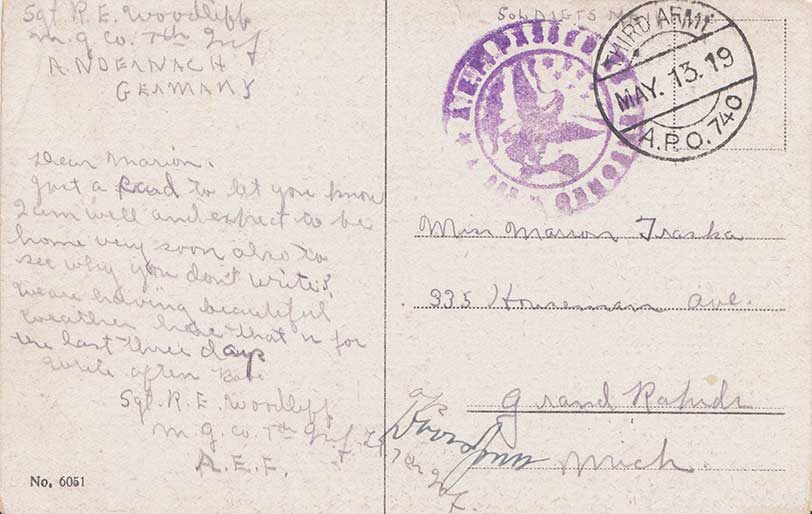 Sgt R. E. Woodliff
M. G. Co. 7th Inf
ANDERNACH
GERMANY
Dear Marion.
Just a card to let you know
I am well and expect to be
home very soon also to
see why you don't write?
We are having beautiful
weather here that is for
the last three days
write often
Sgt. R. E. Woodliff
M. G. Co. 7th Inf.
A.E.F.
No. 6051
SOLDIERS MAIL
A.E.F. PASSED
THIRD ARMY
MAY. 13. 19
A.P.O. 740
Miss Marion Traska
335 Houseman Ave.
Grand Rapids
Mich.